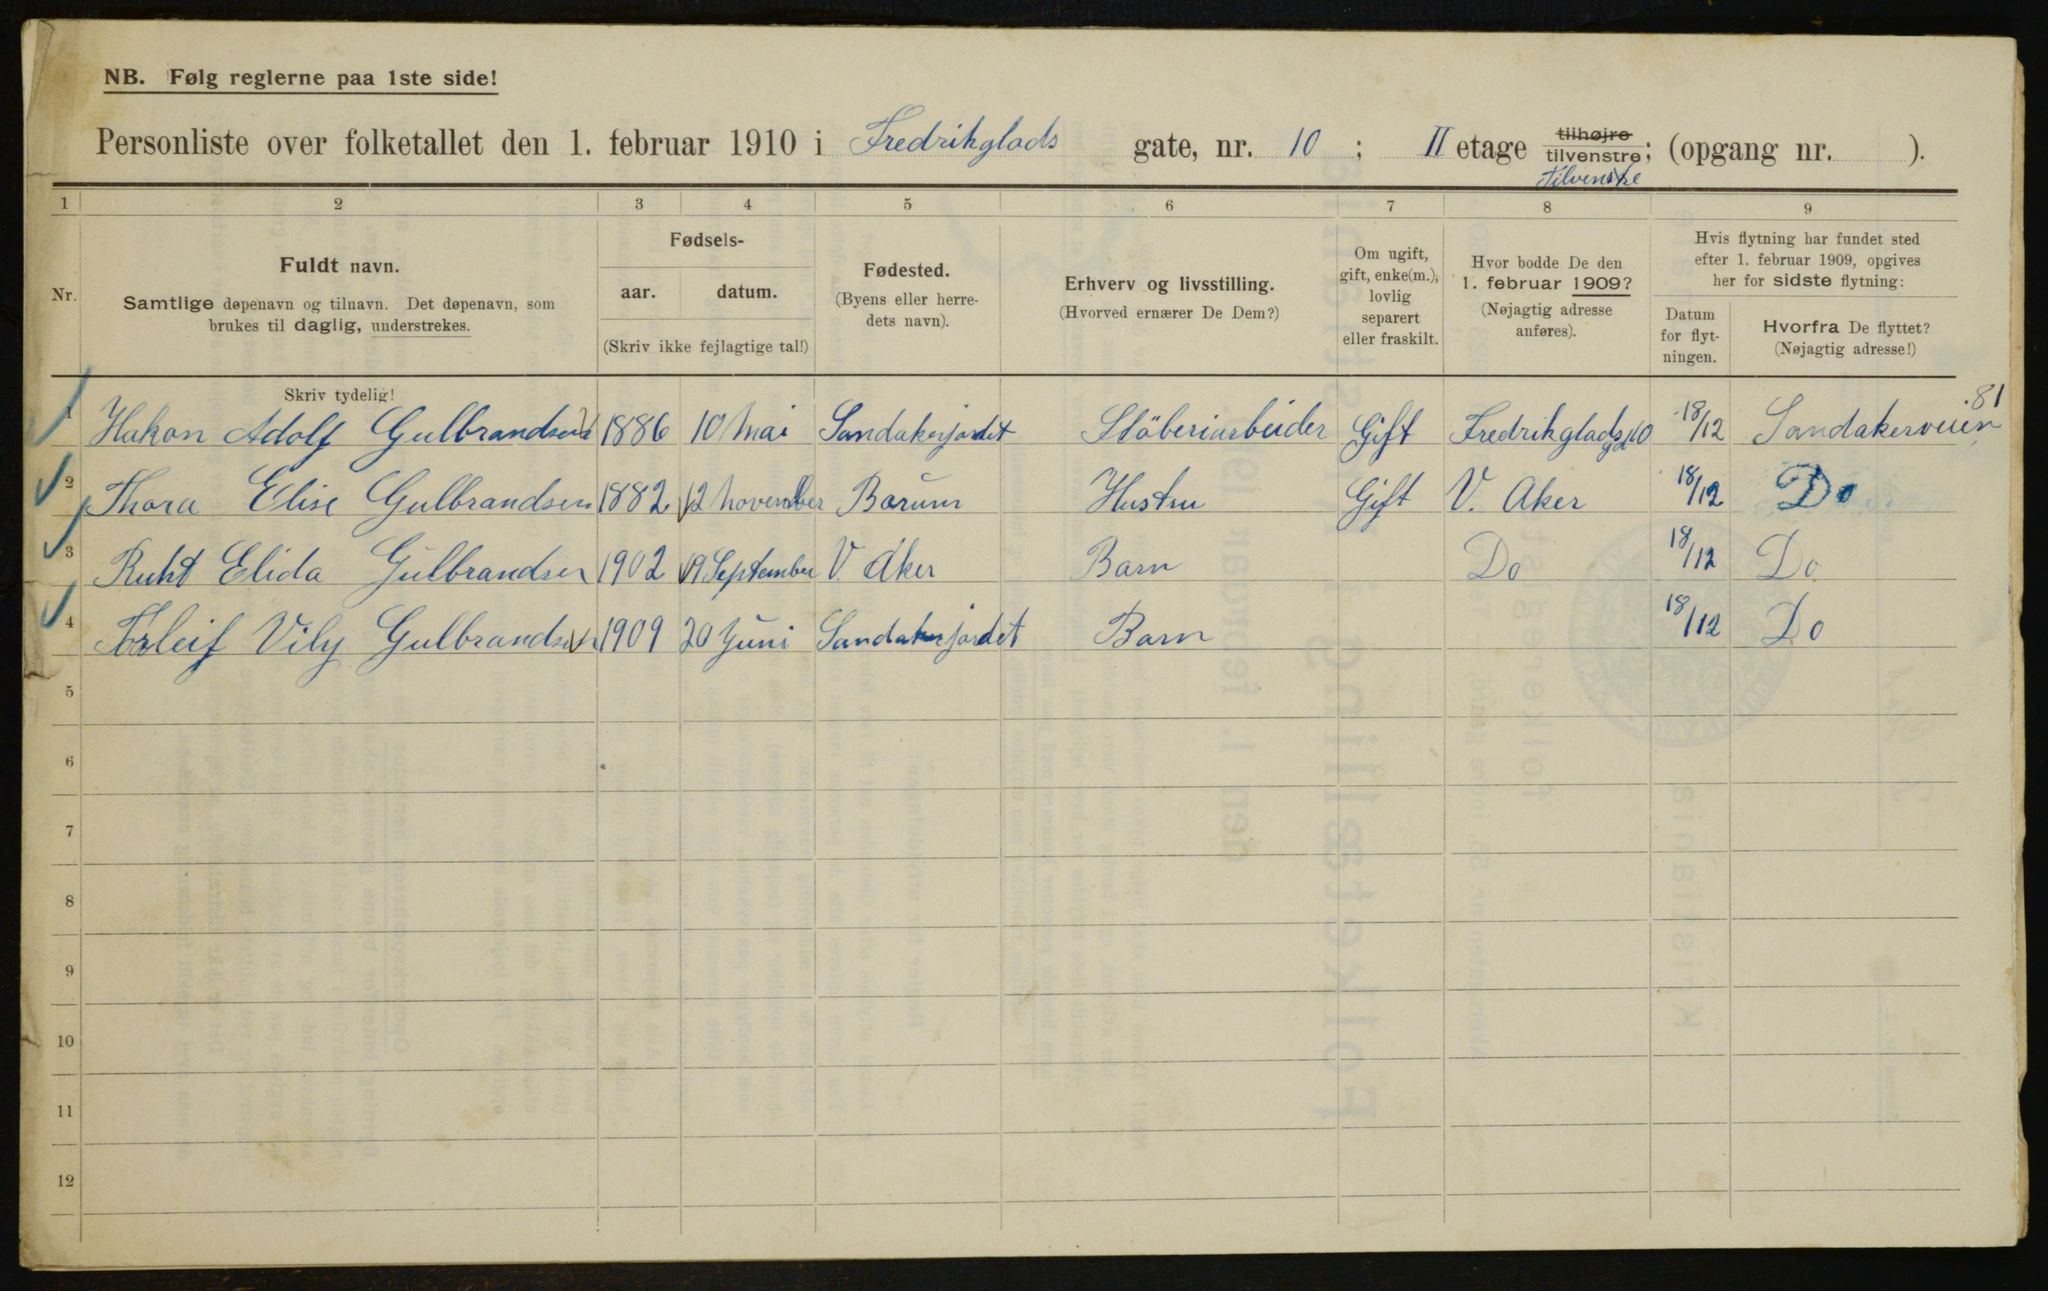 NB. Følg reglerne paa 1ste side!
Personliste over folketallet den 1. februar 1910 i Fredrikglads gate, nr. 10 ; II etage tilhøjre tilvenstre; (opgang nr. ).
Tilvenstre
1 2 3 4 5 6 7 8 9
Nr.
Fuldt navn.
Samtlige døpenavn og tilnavn. Det døpenavn, som
brukes til daglig, understrekes.
Fødsels-
aar. datum.
(Skriv ikke fejlagtige tal!)
Fødested.
(Byens eller herre-
dets navn).
Erhverv og livsstilling.
(Hvorved ernærer De Dem?)
Om ugift,
gift, enke(m.),
lovlig
separert
eller fraskilt.
Hvor bodde De den
1. februar 1909?
(Nøjagtig adresse
anføres).
Hvis flytning har fundet sted
efter 1. februar 1909, opgives
her for sidste flytning:
Datum
for flyt-
ningen.
Hvorfra De flyttet?
(Nøjagtig adresse!)
Skriv tydelig!
1 Hakon Adolf Gulbrandsen 1886 10 Mai Sandakerjordet Stöberiarbeider Gift Fredrikglads gd 10 18/12 Sandakerveien 81
2 Thora Elise Gulbrandsen 1882 12 November Barum Hustru Gift V. Aker 18/12 Do
3 Ruht Elida Gulbrandsen 1902 19 September V. Aker Barn Do 18/12 Do
4 Torleif Vily Gulbrandsen 1909 20 Juni Sandakerjordet Barn 18/12 Do
5
6
7
8
9
10
11
12